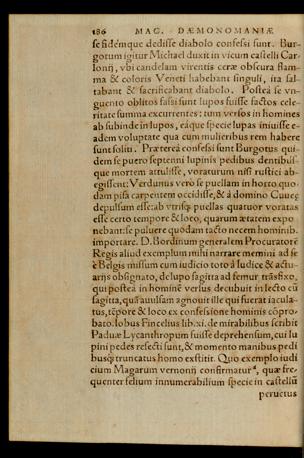 186 MAG. DÆMONOMANIÆ
se fidémque dedisse diabolo confessi sunt. Bur-
gotum igitur Michael duxit in vicum castelli Car-
lonij, vbi candelam virentis ceræ obscura flam-
ma & coloris Veneti habebant singuli, ita sal-
tabant & sacrificabant diabolo. Posteà se vn-
guento oblitos fassi sunt lupos fuisse factos cele-
ritate summa excurrentes: tum versos in homines
ab subinde in lupos, eáque specie lupas iniuisse e-
adem voluptate qua cum mulieribus rem habere
sunt soliti. Præterea confessi sunt Burgotus qui-
dem se puero septenni lupinis pedibus dentibus-
que mortem attulisse, voraturum nisi rustici ab-
egissent: Verdunus verò se puellam in horto quo-
dam pisa carpentem occidisse, & à domino
depulsum esse: ab vtrisq; puellas quatuor voratas
esse certo tempore & loco, quarum ætatem expo
nebant: se puluere quodam tacto necem hominib.
importare. D. Bordinum generalem Procuratorē
Regis aliud exemplum mihi narrare memini ad se
è Belgis missum cum iudicio toto à Iudice & actu-
arijs obsignato, de lupo sagitta ad femur trāsfixo,
qui posteà in hominē versus decubuit in lecto cū
sagitta, quā auulsam agnouit ille qui fuerat iacula-
tus, tēpore & loco ex confessione hominis cōpro-
bato. Iobus Fincelius lib. xi. de mirabilibus scribit
Paduæ Lycanthropum fuisse deprehensum, cui lu
pini pedes resecti sunt, & momento manibus pedi
busq; truncatus homo exstitit. Quo exemplo iudi
cium Magarum vernonij confirmatur, quæ fre-
quenter felium innumerabilium specie in castellū
peruetus